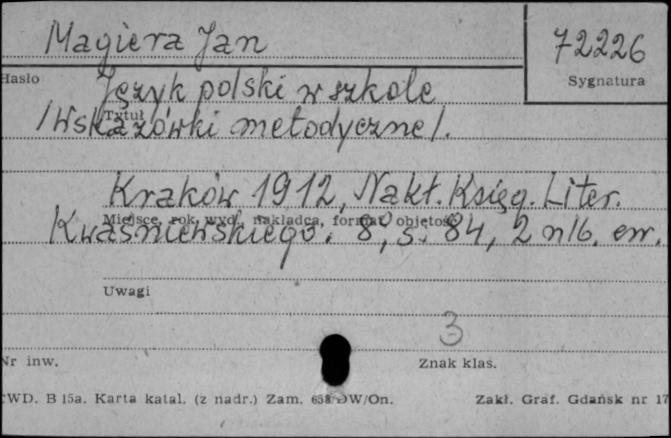 Magiera Jan
72226
Hasło
Sygnatura
Język polski w szkole
Tytuł
/Wskazówki metodyczne/.
Kraków 1912, Nakł. Księg. Liter.
Miejsce, rok wyd., nakładca, format, objętość
Kwaśniewskiego. 8°, s. 84, 2 nlb.
Uwagi
3
Nr inw.
Znak klas.
CWD. B 15a. Karta katal. (z nadr.) Zam. 658/DW/On.
Zakł. Graf. Gdańsk nr 17